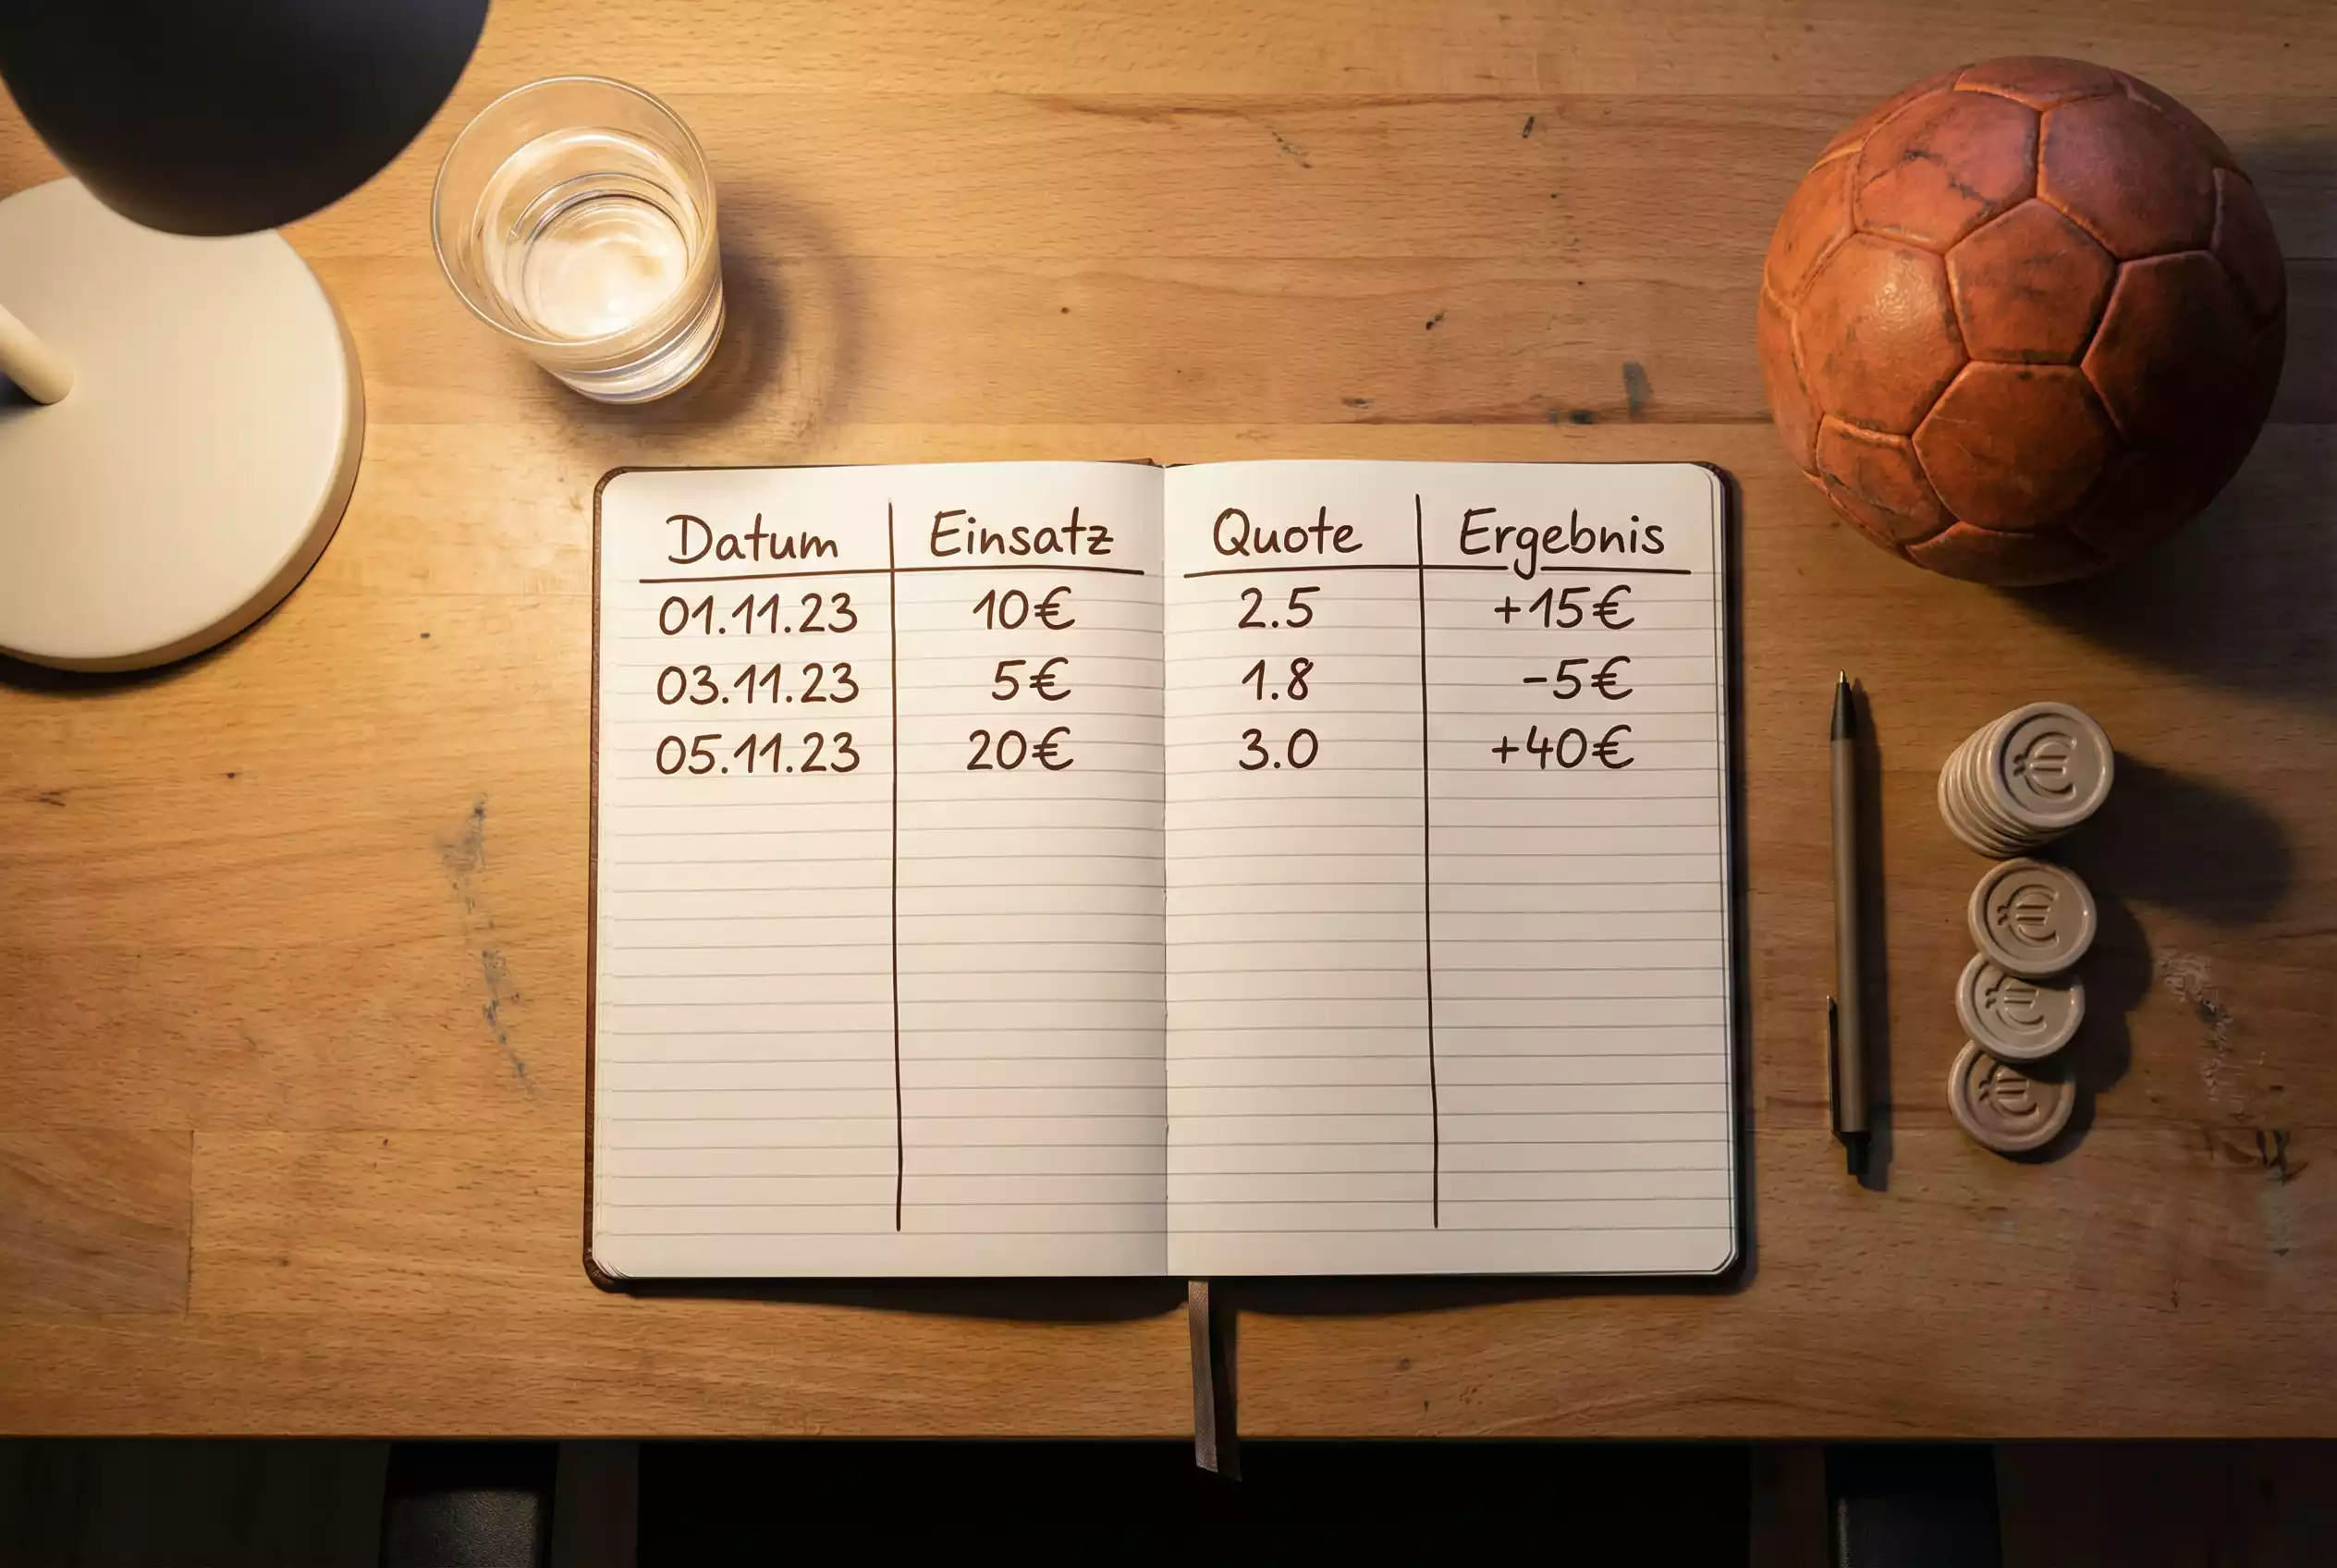 Datum Einsatz Quote Ergebnis
01.11.23 10€ 2.5 +15€
03.11.23 5€ 1.8 -5€
05.11.23 20€ 3.0 +40€
€
€
€
€